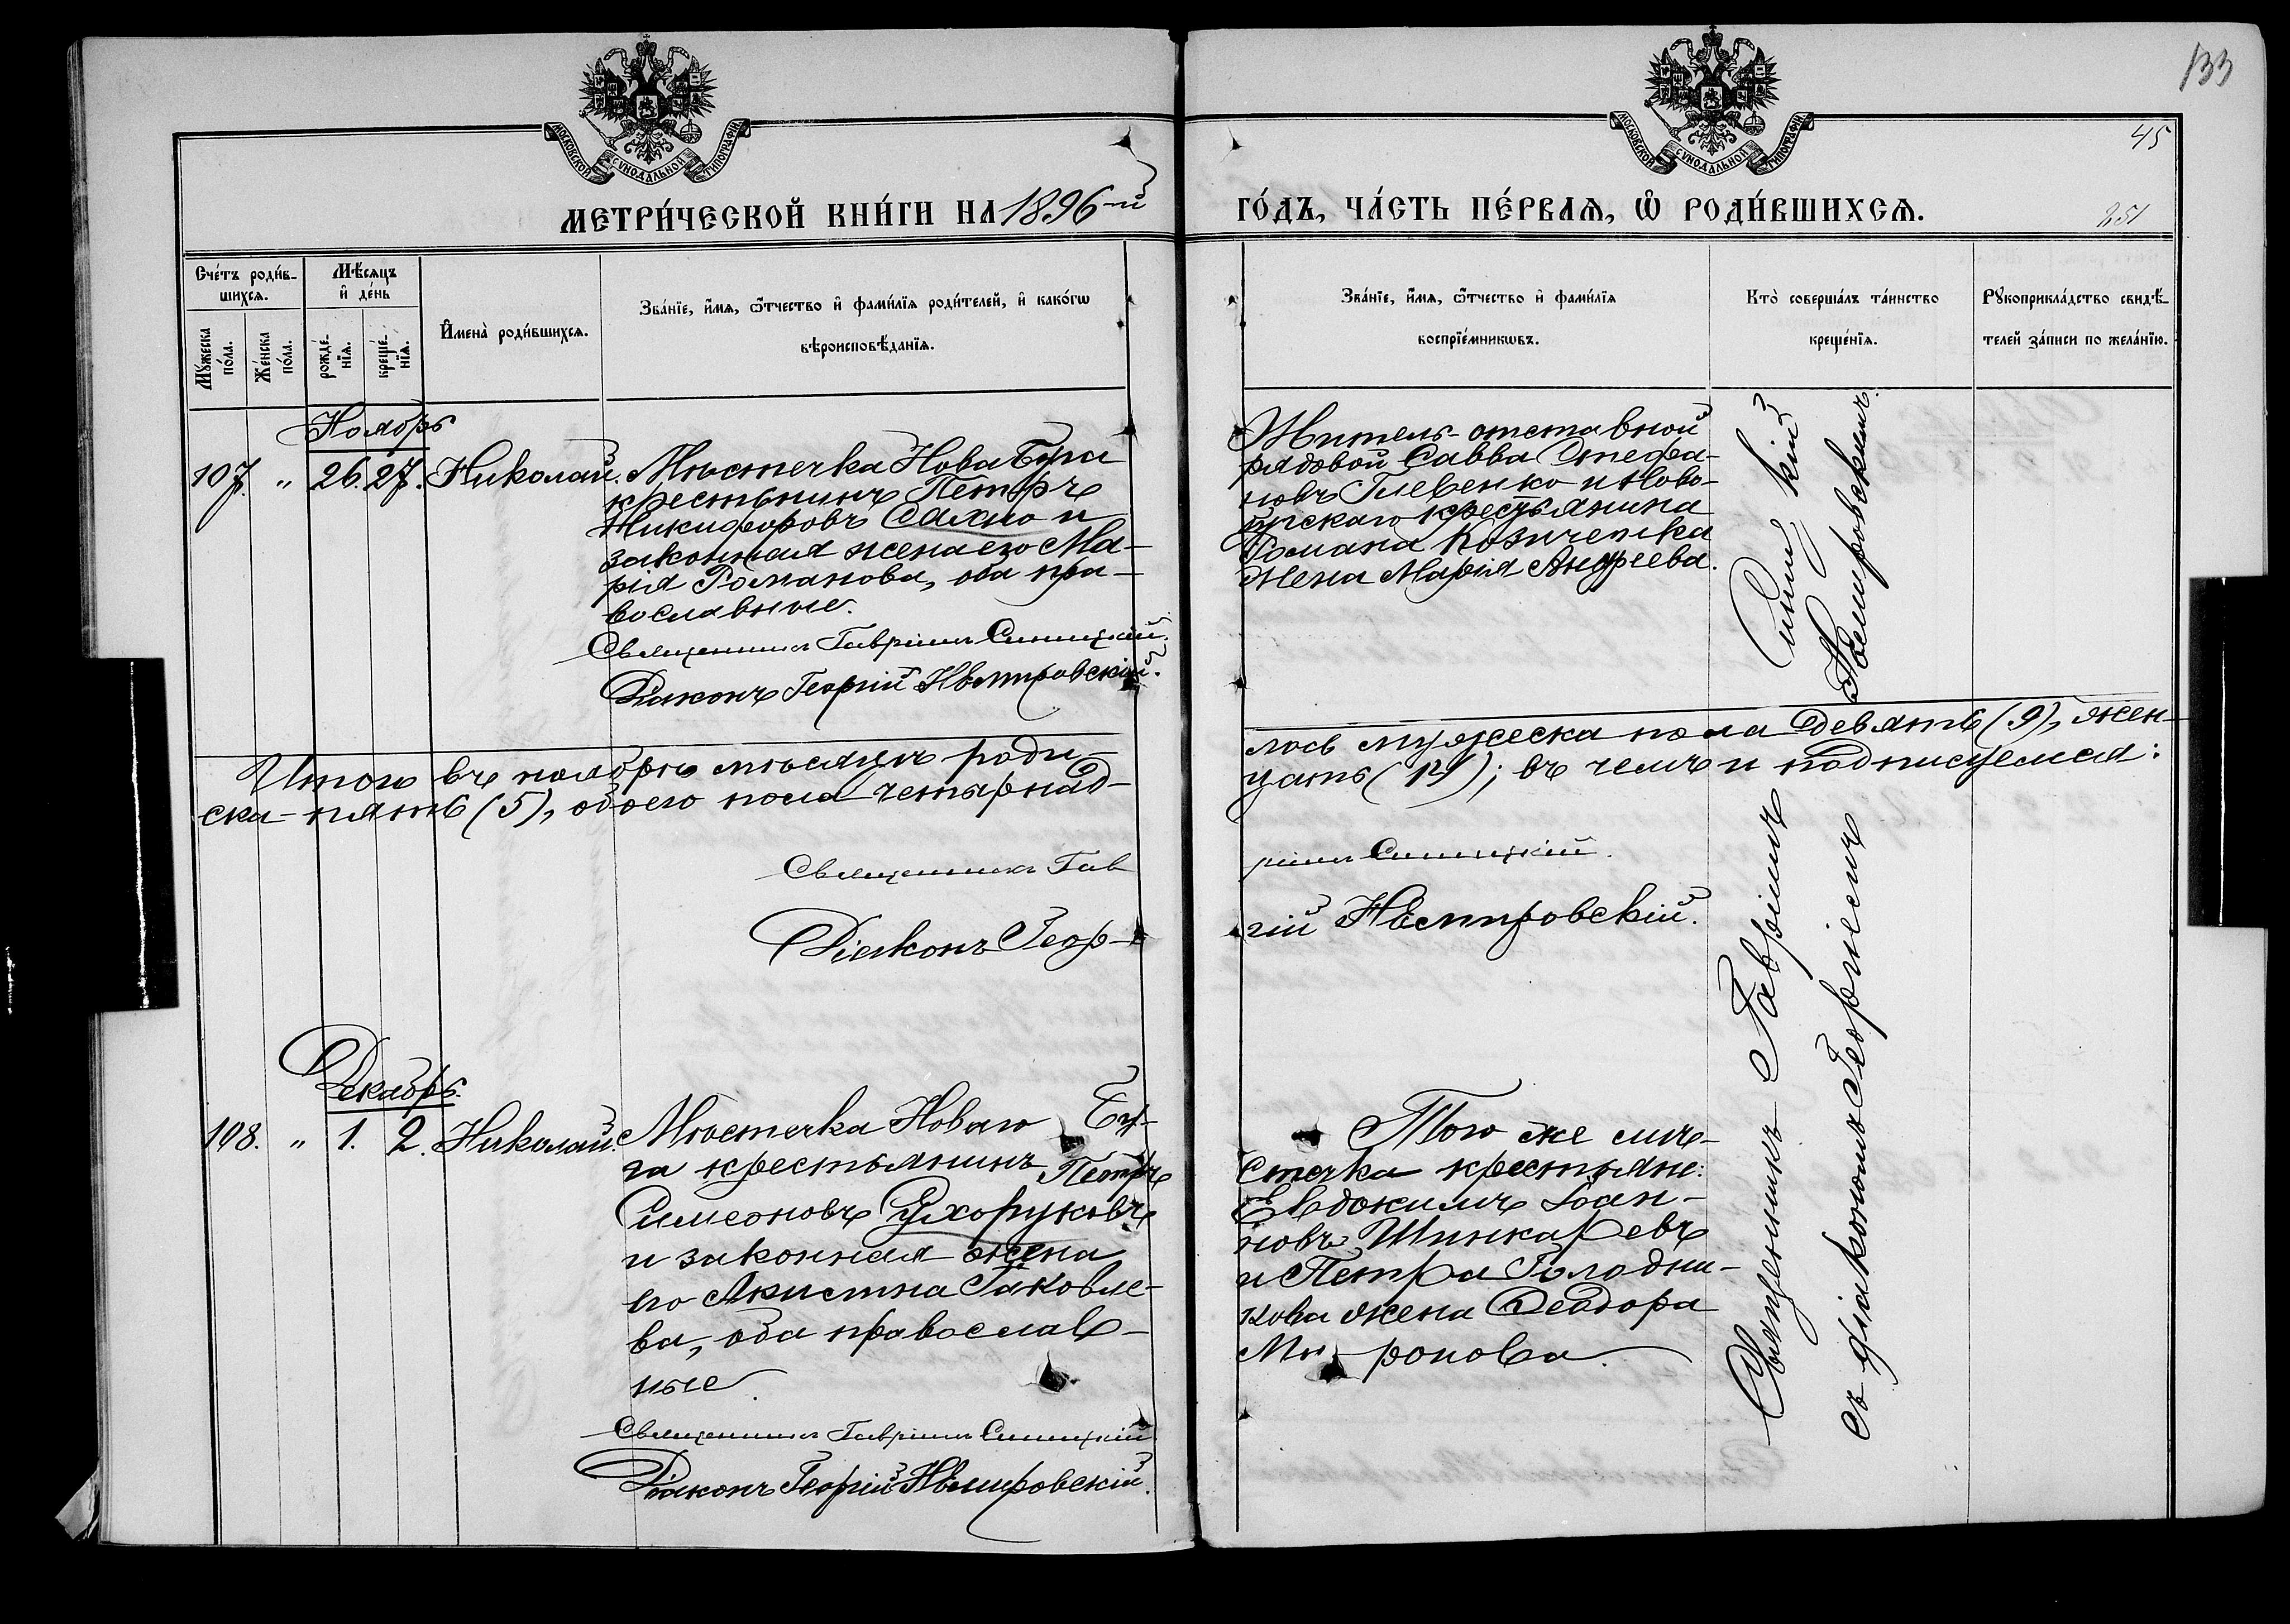 133
45
251
МОСКОВСКОЙ СУНОДАЛЬНОЙ ТИПОГРАФІИ
МОСКОВСКОЙ СУНОДАЛЬНОЙ ТИПОГРАФІИ
МЕТРИ́ЧЕСКОЙ КНИ́ГИ НА 1896-й
ГО́ДЪ, ЧА́СТЬ ПЕ́РВАЯ, Ѡ РОДИ́ВШИХСЯ.
Сче́тъ роди́в-
шихся.
Мѣ́сяцъ
и де́нь
Му́жеска
по́ла.
Же́нска
по́ла.
рожде́-
нія.
креще́-
нія.
Имена̀ роди́вшихся.
Зва́ніе, и́мя, ѻ́тчество и фами́лія роди́телей, и како́гѡ
вѣроисповѣ́данія.
Зва́ніе, и́мя, ѻ́тчество и фами́лія
воспріе́мникѡвъ.
Кто̀ соверша́лъ та́инство
креще́нія.
Рукоприкла́дство свидѣ́-
телей за́писи по жела́нію.
Ноябрь
107. " 26. 27. Николай.
Мѣстечка Нова Буга
крестьянинъ Петръ
Никифоровъ Сахно и
законная жена его Ма-
рія Романова, оба пра-
вославные.
Священникъ Гавріилъ Синицкій.
Діаконъ Георгій Нѣмировскій.
Житель- отставной
рядовой Савва Стефа-
новъ Глевенко и Ново-
бугскаго крестьянина
Романа Козиченка
жена Марія Андреева.
Итого въ ноябрѣ мѣсяцѣ роди-
лось мужеска пола девять (9), жен-
ска- пять (5), обоего пола четырнад-
цать (14); въ чемъ и подписуемся:
Священникъ Гав
ріилъ Синицкій.
Діаконъ Геор-
гій Нѣмировскій.
Декабрь.
108. " 1. 2. Николай.
Мѣстечка Новаго Бу-
га крестьянинъ Петръ
Симеоновъ Сухоруковъ
и законная жена
его Анистна Іаковле-
ва, оба православ-
ные.
Священникъ Гавріилъ Синицкій
Діаконъ Георгій Нѣмировскій.
Того же мѣ-
стечка крестьяне:
Евдокимъ Іоан-
новъ Шинкаревъ
и Петра Голодни-
кова жена Ѳеодора
Миронова.
Священникъ Гавріилъ Синицкій
съ діакономъ Георгіемъ Нѣмировскимъ.